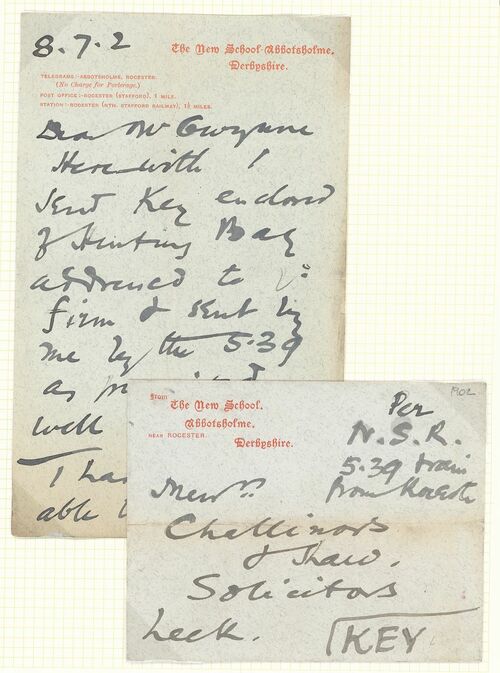 8.7.2
The New School-Abbotsholme,
Derbyshire.
TELEGRAMS:-ABBOTSHOLME, ROCESTER.
(No Charge for Porterage.)
POST OFFICE:-ROCESTER (STAFFORD), 1 MILE.
STATION:-ROCESTER (NTH. STAFFORD RAILWAY), 1½ MILES.
Dear Mr Gwynne
Herewith I
send Key enclosed
of Hunting Bag
addressed to yr
firm & sent by
me by the 5.39
as
well
I ha
able
1902
From
The New School,
Abbotsholme,
NEAR ROCESTER.
Derbyshire.
Per
N.S.R.
5.39 train
from Rocester
Messrs
Challinors
& Shaw.
Solicitors
Leek.
KEY